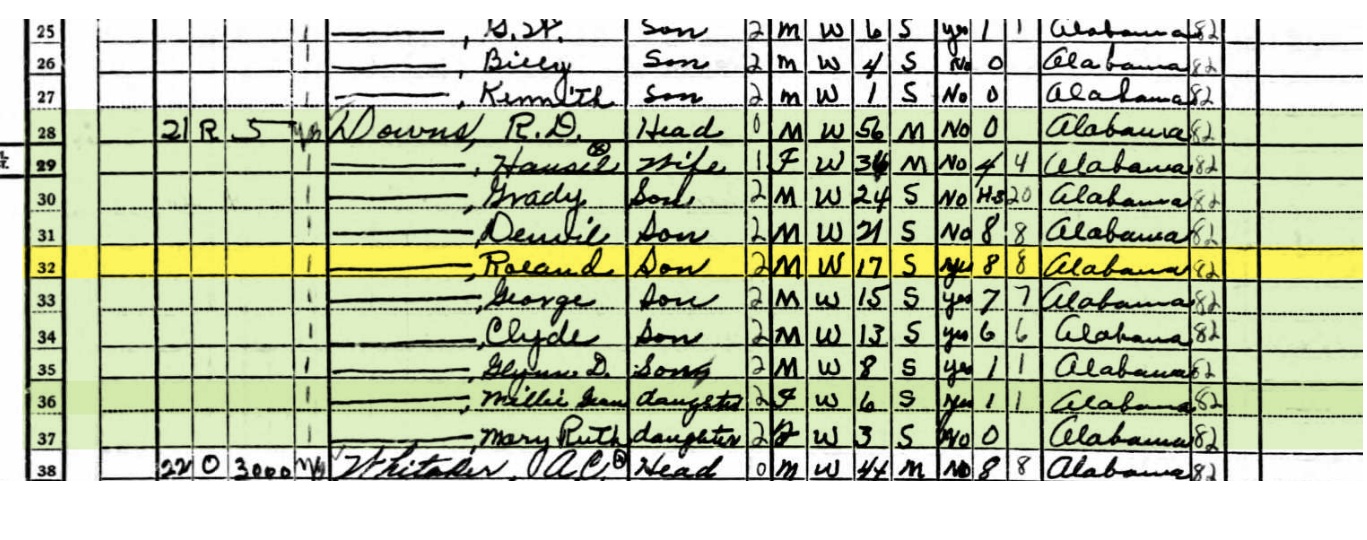 25 S.W. Son 2 M W 6 S yes 1 1 Alabama 82
26 Billy Son 2 M W 4 S No 0 Alabama 82
27 Kennith Son 2 M W 1 S No 0 Alabama 82
28 21 R 5 yes Downs, R.D. Head 0 M W 56 M No 0 Alabama 82
29 Wife 1 F W M No 4 4 Alabama 82
30 Grady Son 2 M W 24 S No HS 20 Alabama 82
31 Denvil Son 2 M W 21 S No 8 8 Alabama 82
32 Roland Son 2 M W 17 S yes 8 8 Alabama 82
33 George Son 2 M W 15 S yes 7 7 Alabama 82
34 Clyde Son 2 M W 13 S yes 6 6 Alabama 82
35 Glynn D. Son 2 M W 8 S yes 1 1 Alabama 82
36 Millie Jean daughter 2 F W 6 S yes 1 1 Alabama 82
37 Mary Ruth daughter 2 F W 3 S No 0 Alabama 82
38 22 O 3000 Whitaker, A.C. Head 0 M W 44 M No 8 8 Alabama 82